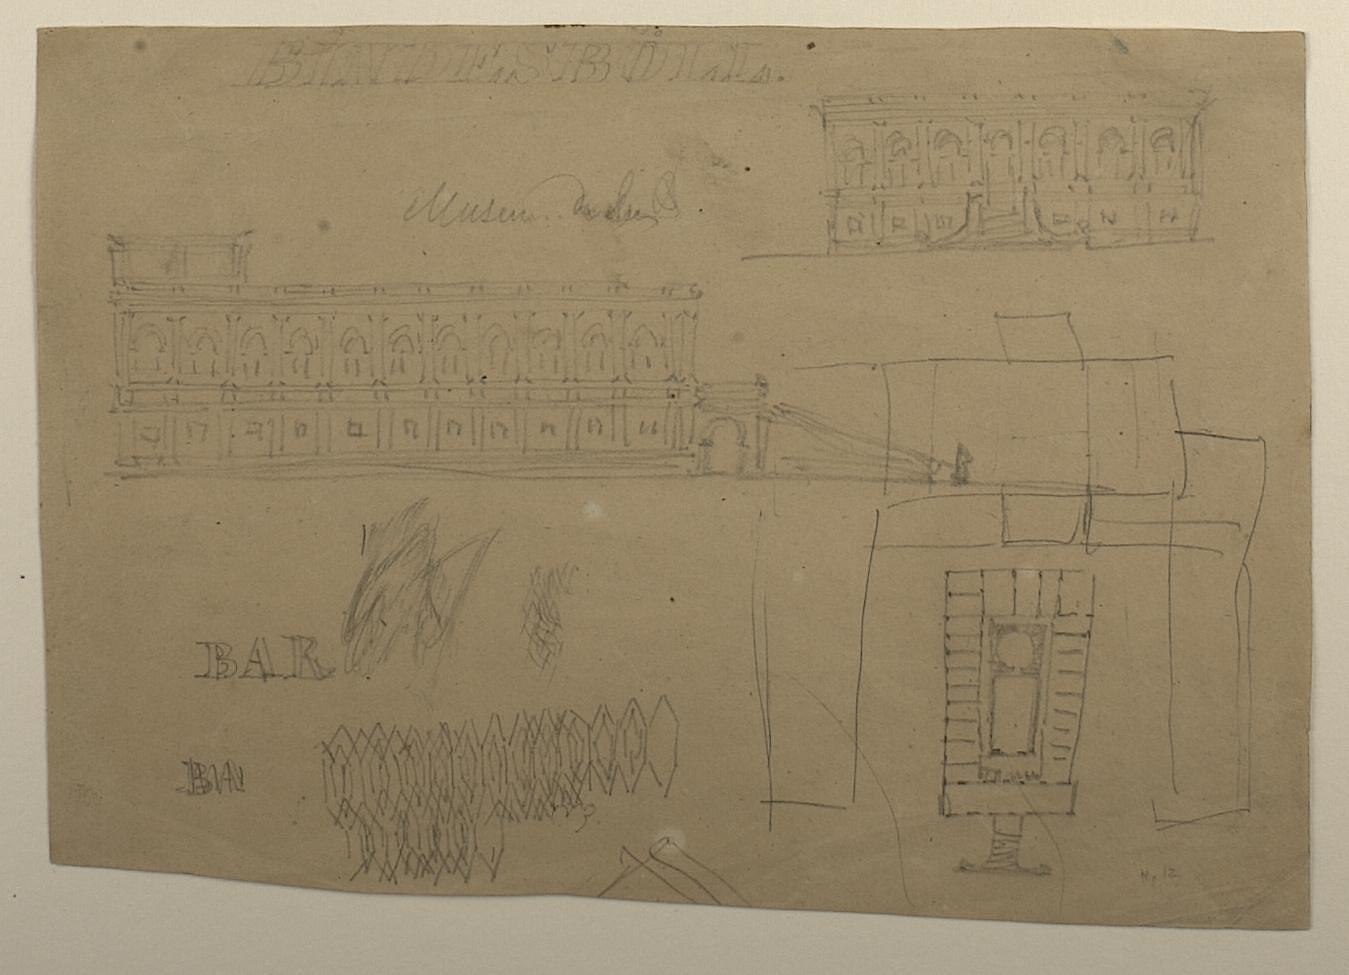 BINDESBØLL.
Museum
BAR
BA
No 12